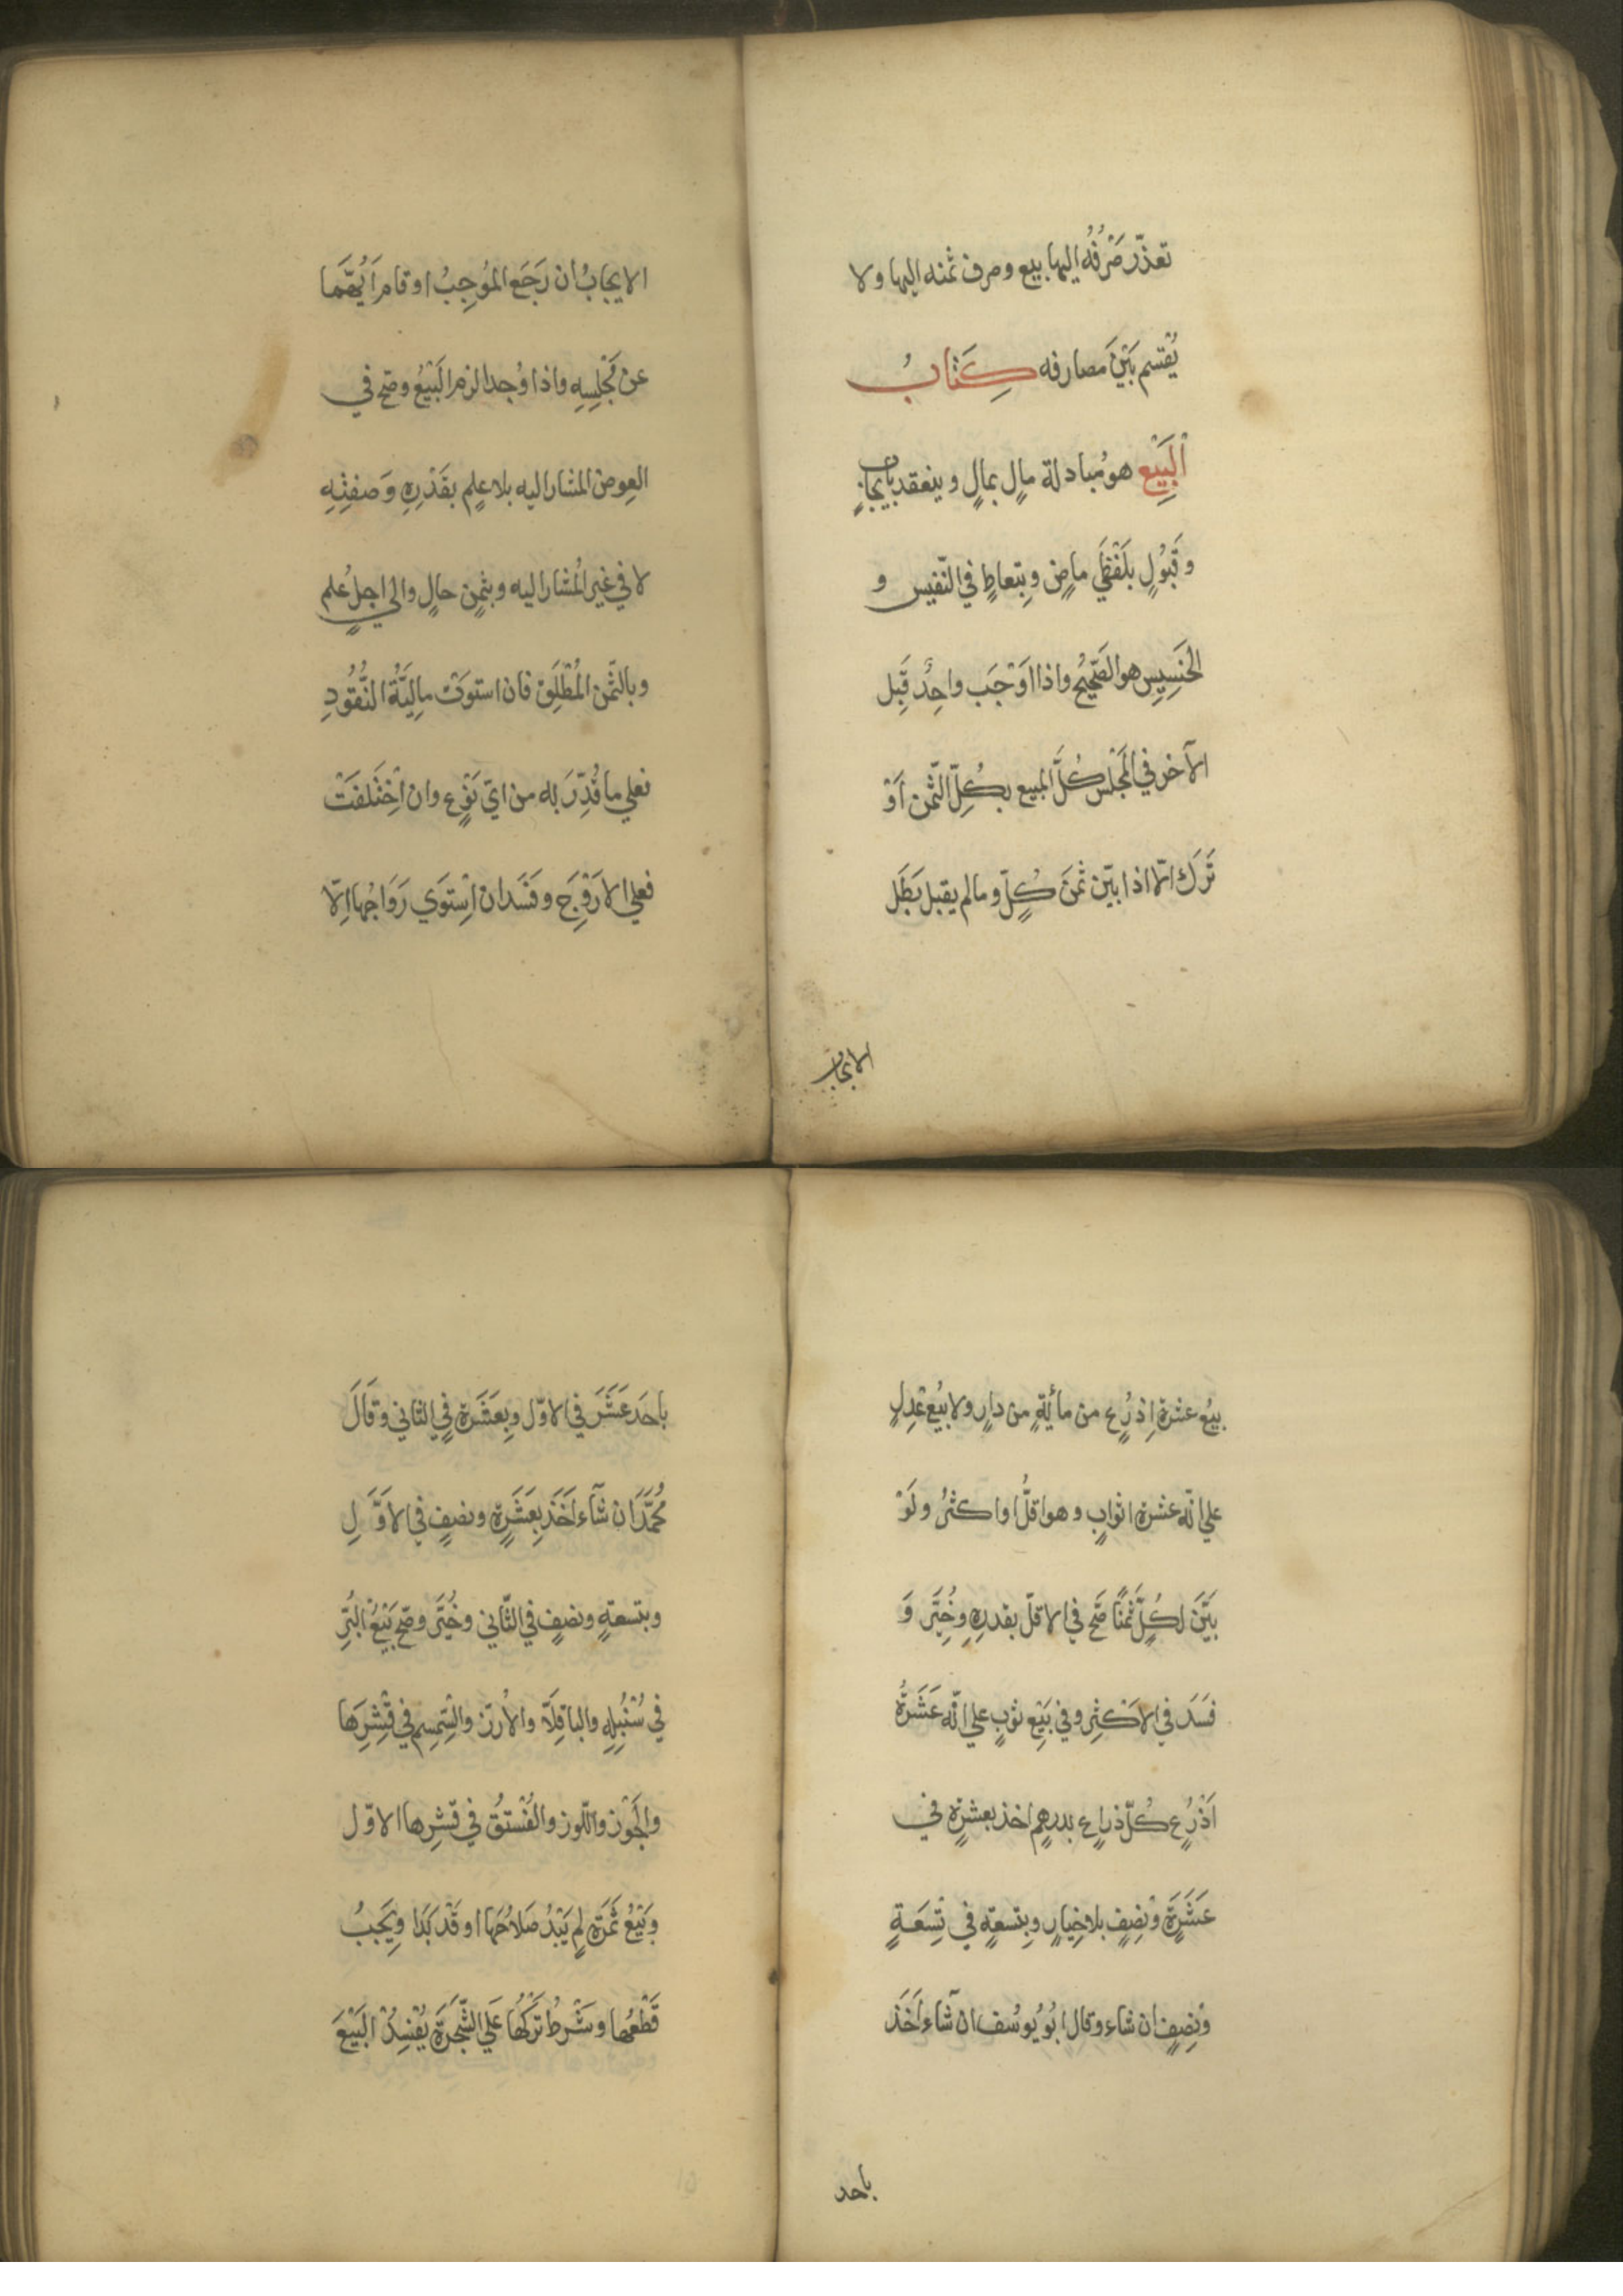 تعذّر صَرْفُه اليها بيع وصرف ثمنه اليها ولا
يُقْتسم بَيْنَ مَصارفه كِتَابُ
الْبَيِع هو مُبادلة مالٍ بمالٍ وينعقد بايجابٍ
وقَبُوُلٍ بلَفْظَي ماضٍ وبِتعاطٍ في النّفيس و
الخَسِيِس هو الصَّحِيحُ واذا اَوْجَب واحِدٌ قَبِل
الآخر في المَجْلس كُلَّ المبيع بكُلِّ الثّمن اَوْ
تَرَك الّا اذا بيّن ثمنَ كُلٍّ وما لم يقبل بَطَل
الايجاب
الايجابُ ان رَجَع المُوجِبُ او قام اَيُّهُمَا
عن مَجْلِسِهِ واذا وُجدا لزم البَيْعُ وصَحّ في
العِوض المشار اليه بلا عِلمٍ بقَدْرِهِ وَصفتِهِ
لا في غير المُشار اليه وبثمنٍ حالٍ والى اجلٍ عُلم
وبالثّمن المُطْلَق فان استوَتْ مالِيَّةُ النُّقُودِ
فعلي ما قُدِّرَ به من ايّ نَوْعٍ وان اخْتَلفَتْ
فعلي الارْوَجِ وفَسَد ان اسْتوَي رَوَاجُها اِلّا
بيعُ عشرة اذرُعٍ من مأيَةٍ من دارٍ ولا بيعُ عِدْلٍ
علي انّه عشرة اثوابٍ وهو اقلُّ او اكثرُ ولَوْ
بَيّنَ لكُلٍّ ثَمَنًا صَحّ في الاقلّ بقدرِهِ وخُيِّرَ وَ
فَسَدَ في الاكثرِ وفي بَيْعِ ثوبٍ علي انّه عَشَرَةُ
اَذْرُعٍ كُلّ ذراعٍ بدرهمٍ اخذ بعشرةٍ في
عَشَرةٍ ونِصفٍ بلا خِيارٍ وبتسعةٍ في تِسعَةٍ
ونِصفٍ ان شاء وقال ابُو يُوسُف ان شاء اَخَذَ
باحد
باحَدَ عَشَرَ في الاوّل وبعَشَرةٍ في الثاني وقَالَ
مُحمَّدٌ ان شآء اَخَذَ بِعَشَرةٍ ونصفٍ في الاَوَّلِ
وبتسعةٍ ونصفٍ في الثّاني وخُيِّرَ وصَحّ بَيْعُ البُرِّ
في سُنْبُلِهِ والباقِلَّا والاُرزّ والسِّمسِم في قِشْرِهَا
والجَوْز واللّوز والفُسْتُق في قشرِها الاوّل
وبَيْعُ ثَمَرةٍ لم يَبْدُ صَلاحُهَا او قَدْ بَدَا ويَجبُ
قَطْعُها وشَرْطُ تَرْكِهَا عَلَي الشَّجَرَة يُفْسِدُ البَيْعَ